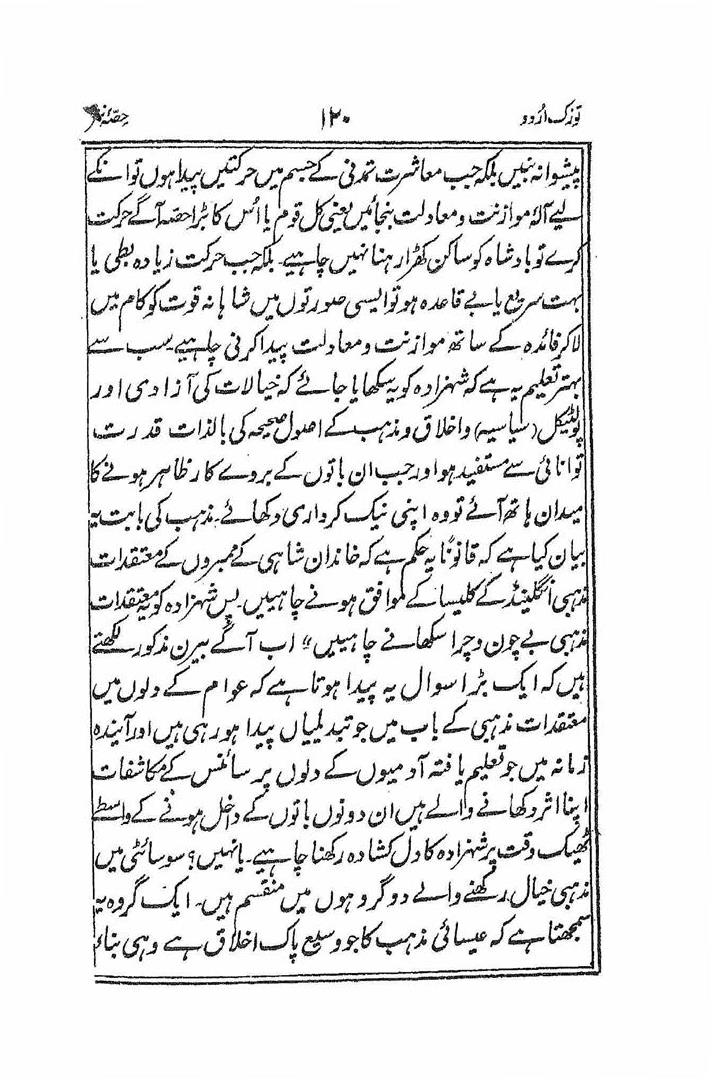 توزک اُردو ۱۲۰ حصّہ
پیشوا نہ بنیں بلکہ جب معاشرت تمدنی کے جسم میں حرکتیں پیدا ہوں تو انکے
لیے آلۂ موازنت و معادلت بنجائیں یعنی کل قوم یا اُس کا بڑا حصّہ آگے حرکت
کرے تو بادشاہ کو ساکن کھڑا رہنا نہیں چاہیے۔ بلکہ جب حرکت زیادہ بطی یا
بہت سریع یا بے قاعدہ ہو تو ایسی صورتوں میں شاہانہ قوت کو کام میں
لاکر فائدہ کے ساتھ موازنت و معادلت پیدا کرنی چاہیے۔ سب سے
بہتر تعلیم یہ ہے کہ شہزادہ کو یہ سکھایا جائے کہ خیالات کی آزادی اور
پولٹیکل (سیاسیہ) و اخلاق و مذہب کے اصول صحیحہ کی بالذات قدرت
توانائی سے مستفید ہو اور جب ان باتوں کے بروے کار ظاہر ہونے کا
میدان ہاتھ آئے تو وہ اپنی نیک کرداری دکھائے۔ مذہب کی بابت یہ
بیان کیا ہے کہ قانوناً یہ حکم ہے کہ خاندان شاہی کے ممبروں کے معتقدات
مذہبی انگلینڈ کے کلیسا کے موافق ہونے چاہییں۔ پس شہزادہ کو یہ معتقدات
مذہبی بے چون و چرا سکھانے چاہییں" اب آگے بیرن مذکور لکھتے
ہیں کہ ایک بڑا سوال یہ پیدا ہوتا ہے کہ عوام کے دلوں میں
معتقدات مذہبی کے باب میں جو تبدیلیاں پیدا ہو رہی ہیں اور آیندہ
زمانہ میں جو تعلیم یافتہ آدمیوں کے دلوں پر سائنس کے مکاشفات
اپنا اثر دکھانے والے ہیں ان دونوں باتوں کے داخل ہونے کے واسطے
ٹھیک وقت پر شہزادہ کا دل کشادہ رکھنا چاہیے۔ یا نہیں؟ سوسائٹی میں
مذہبی خیال رکھنے والے دو گروہوں میں منقسم ہیں۔ ایک گروہ یہ
سمجھتا ہے کہ عیسائی مذہب کا جو وسیع پاک اخلاق ہے وہی بناء